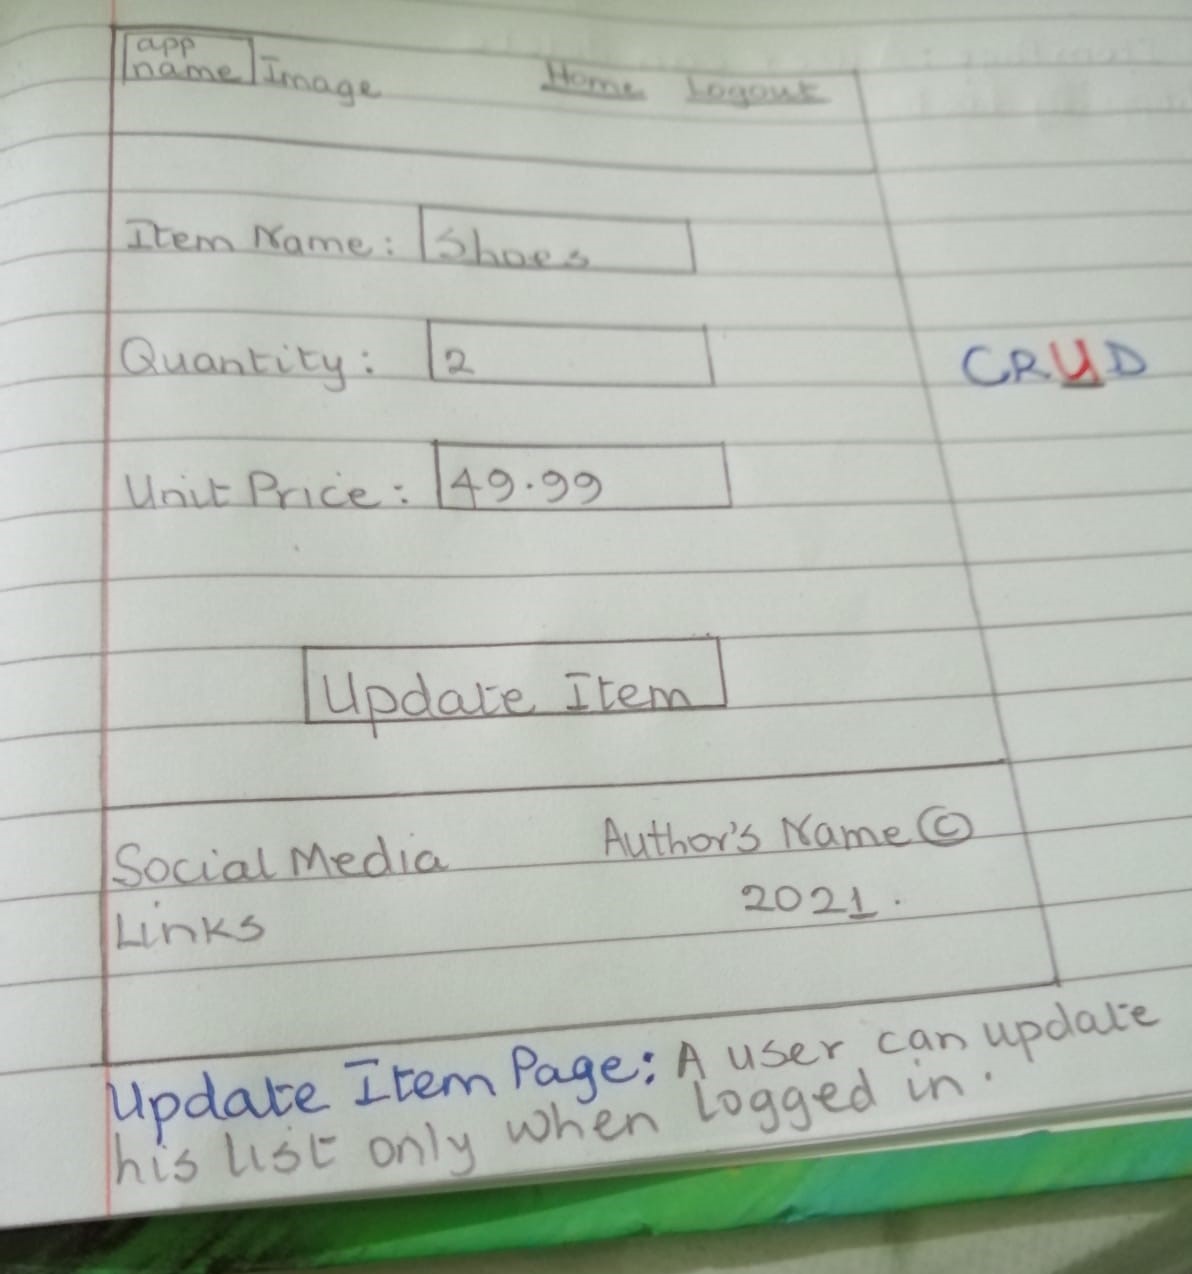 app
name Image Home Logout
Item Name: Shoes
Quantity: 2
CRUD
Unit Price: 49.99
Update Item
Social Media Author's Name ©
Links 2021.
Update Item Page: A user can update
his list only when logged in.